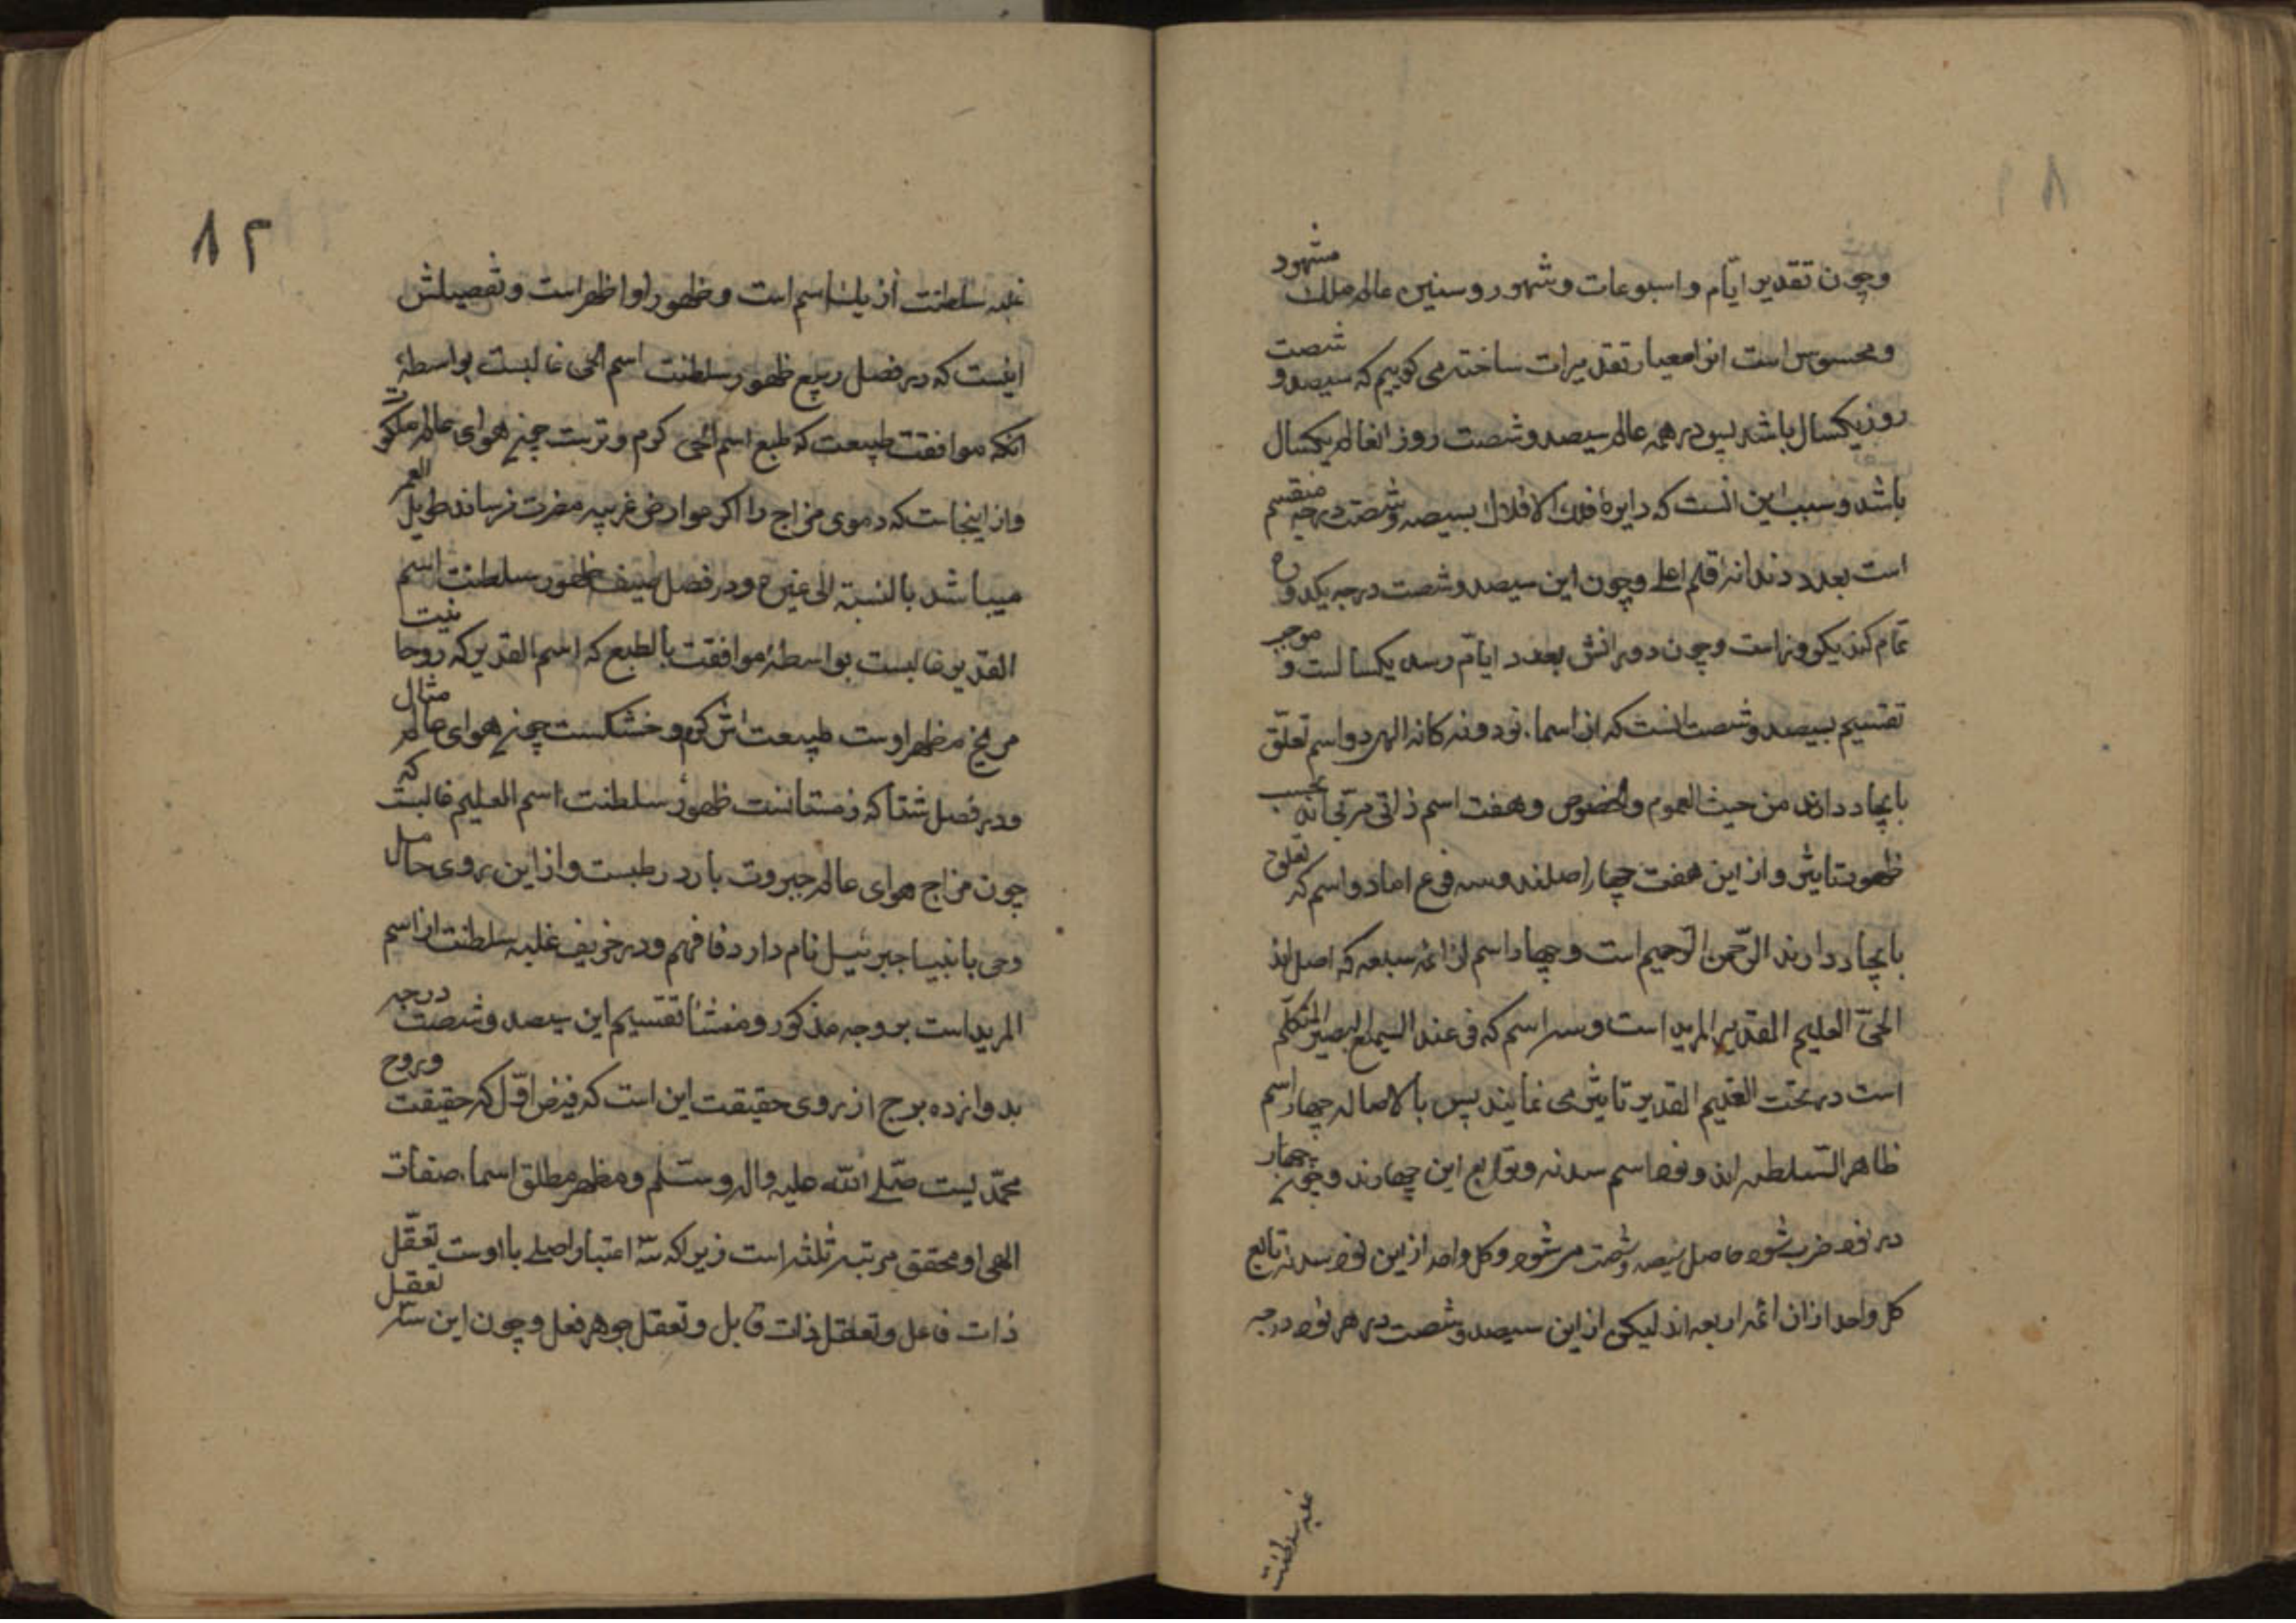 وچون تقدیر ایّام و اسبوعات وشهور وسنین عالم ملک مشهود
ومحسوس است انرا معیار تقدیرات ساخته می کوییم که سیصد و شصت
روز یکسال باشد پس در همه عالم سیصد وشصت روز انعالم یکسال
باشد و سبب این انست که دایرهٔ فلک الافلاک بسیصد وشصت درجه منقسم
است بعدد دندانه قلم اعلی وچون این سیصد وشصت درجه یکدوره
تمام کند یکروز است وچون دورانش بعدد ایّام رسد یکسالست و موجب
تقسیم بسیصد وشصت انست که از اسماء نود ونه کانه الهی دو اسم تعلّق
بایجاد دارند من حیث العموم والخصوص وهفت اسم ذاتی مرتبه اند بحسب
ظهور تاثیر و از این هفت چهار اصلند وسه فرع اما دو اسم که تعلق
بایجاد دارند الرّحمن الرّحیم است وچهار اسم از ائمه سبعه که اصل اند
الحیّ العلیم القدیر المرید است وسه اسم که فرعند السمیع البصیر المتکلّم
است در تحت العلیم القدیر تاثیر می نمایند پس بالاصاله چهار اسم
ظاهر السّلطنه اند و نود اسم سدنه وتوابع این چهارند وچون چهار
در نود ضرب شود حاصل سیصد وشصت میشود وکل واحد از این نود سدنه تابع
کل واحد از ان ائمه اربعه اند لیکن از این سیصد وشصت در هر نود درجه
غلبه سلطنت
۸۲
غلبه سلطنت از یک اسم است وظهور او اظهر است وتفصیلش
اینست که در فصل ربیع ظهور سلطنت اسم الحی غالبست بواسطهٔ
انکه موافقت طبیعت که طبع اسم الحی کرم وترست چون هوای عالم ملکوت
واز اینجاست که دموی مزاج را اکر عوارض غریبه مضرت نرساند طویل العمر
میباشد بالنسبة الی غیره ودر فصل صیف ظهور سلطنت اسم
القدیر غالبست بواسطهٔ موافقت بالطبع که اسم القدیر که روحانیت
مریخ مظهر اوست طبیعت اش کرم وخشکست چون هوای عالم مثال
ودر فصل شتا که زمستانست ظهور سلطنت اسم العلیم غالبست که
چون مزاج هوای عالم جبروت بارد رطبست واز این روی حامل
وحی بانبیا جبرئیل نام دارد فافهم ودر خریف غلبه سلطنت از اسم
المرید است بر وجه مذکور ومنشأ تقسیم این سیصد وشصت درجه
بدوازده برج از روی حقیقت این است که فیض اوّل که حقیقت وروح
محمّدیست صلّی الله علیه واله وسلّم ومظهر مطلق اسماء صفات
الهی او ومحقق مرتبه ثلثه است زیراکه سه اعتبار اصلی با اوست تعقّل
ذات فاعل وتعقل ذات قابل وتعقل جوهر فعل وچون این سه تعقل